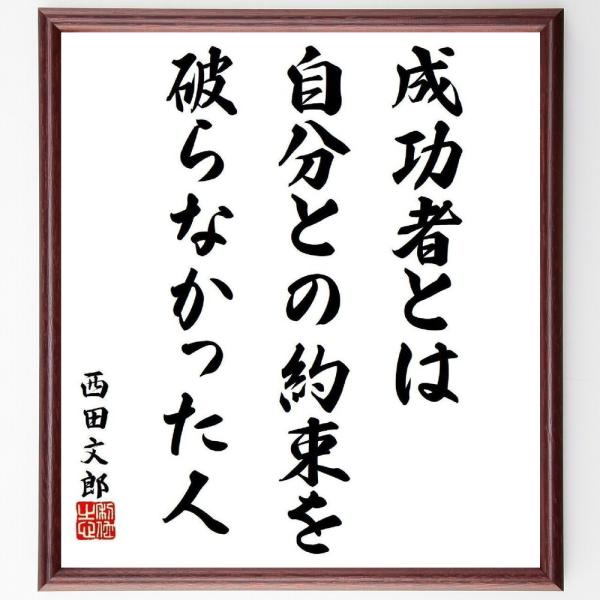 成功者とは
自分との約束を
破らなかった人
西田文郎